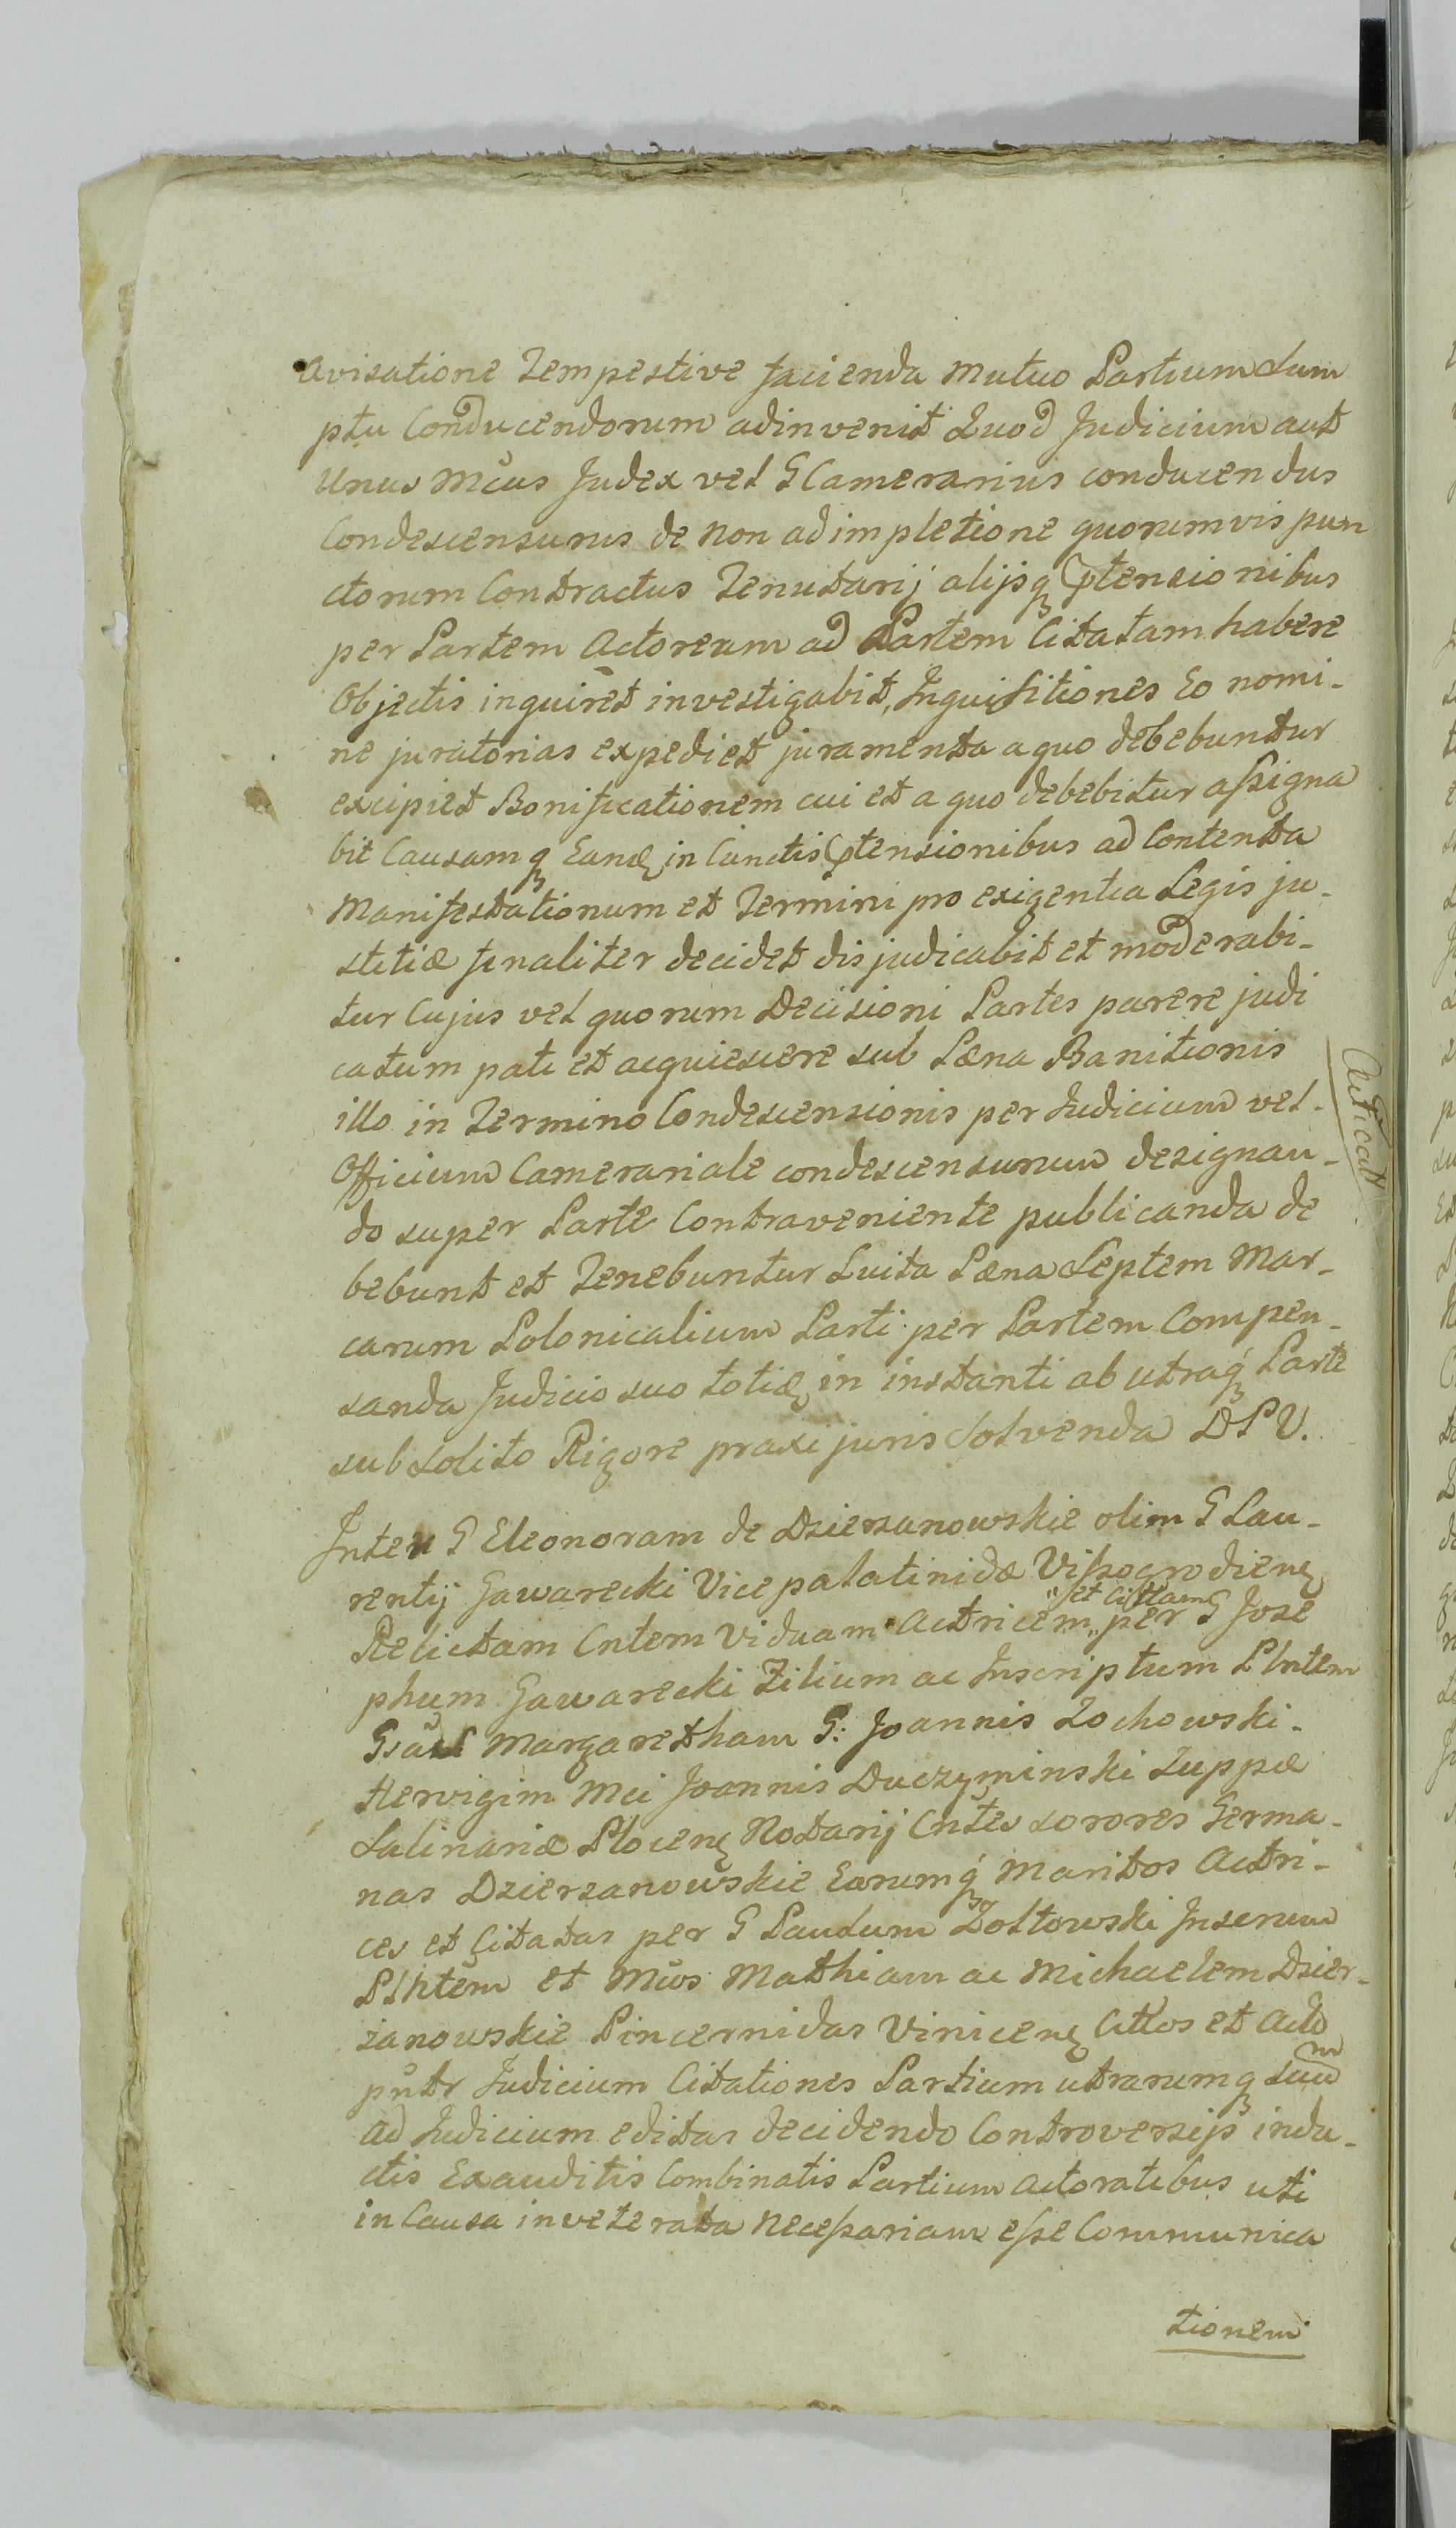 avisatione Tempestive facienda mutuo Partium Sum
ptu Conducendorum adinvenit Quod Judicium aut
Unus Mcus Judex vel G Camerarius conducendus
Condescensurus de non adimpletione quorumvis pun
ctorum Contractus Tenutarij alijsq ptensionibus
per Partem Actoream ad Partem Citatam habere
Objectis inquiret investigabit, Inquisitiones Eo nomi-
ne juratorias expediet juramenta a quo debebuntur
excipiet Bonificationem cui et a quo debebitur assigna
bit Causamq Eand in Cunctis ptensionibus ad Contenta
Manifestationum et Termini pro exigentia Legis ju-
stitiæ finaliter decidet disjudicabit et moderabi-
tur Cujus vel quorum Decisioni Partes parere judi
catum pati et acquiescere sub Pæna Banitionis
illo in Termino Condescensionis per Judicium vel
Officium Camerariale condescensurum designan-
do super Parte Contraveniente publicanda de
bebunt et Tenebuntur Luita Pæna Septem Mar-
carum Polonicalium Parti per Partem Compen-
sanda Judicio suo toties in instanti ab utraq Parte
sub solito Rigore praxi juris solvenda DPV.
Inter G Eleonoram de Dzierzanowskie olim G Lau-
rentij Gawarecki Vicepalatinidæ Vissogrodien
et Cittam
Relictam Cntem Viduam Actricem per G Jose
phum Gawarecki Filium ac Inscriptum Plntem
Margaretham G: Joannis Zochowski
Hervigim Mci Joannis Duczyminski Zuppæ
Salinariæ Plocen Notarij Cntes sorores Germa-
nas Dzierzanowskie Earumq Maritos Actri-
ces et Citatas per G Paulum Zoltowski Inserum
Plntem et Mcos Mathiam ac Michaelem Dzier-
zanowskie Pincernidas Vinicen Cittos et Acto
pntr Judicium Citationes Partium utrarumq suum
ad Judicium editas decidendo Controversijs indu-
ctis Exauditis Combinatis Partium Actoratibus uti
in Causa inveterata necessariam esse Communica
tionem